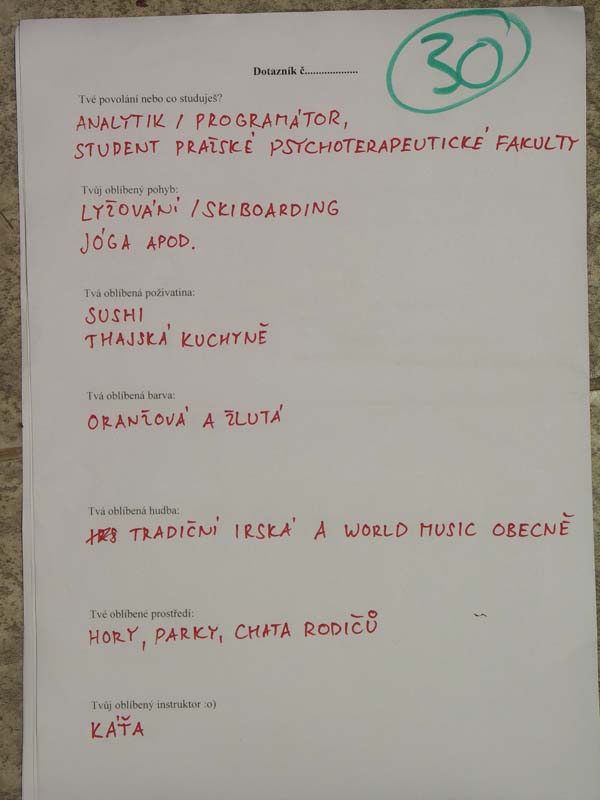 Dotazník č...................
30
Tvé povolání nebo co studuješ?
ANALYTIK / PROGRAMÁTOR,
STUDENT PRAŽSKÉ PSYCHOTERAPEUTICKÉ FAKULTY
Tvůj oblíbený pohyb:
LYŽOVÁNÍ / SKIBOARDING
JÓGA APOD.
Tvá oblíbená poživatina:
SUSHI
THAJSKÁ KUCHYNĚ
Tvá oblíbená barva:
ORANŽOVÁ A ŽLUTÁ
Tvá oblíbená hudba:
TRADIČNÍ IRSKÁ A WORLD MUSIC OBECNĚ
Tvé oblíbené prostředí:
HORY, PARKY, CHATA RODIČŮ
Tvůj oblíbený instruktor :o)
KÁŤA